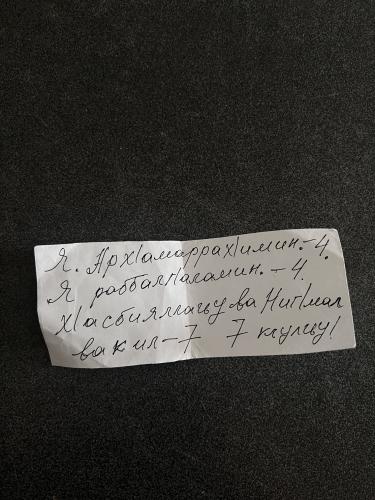 Я. Арх1амаррах1имин. - 4.
Я раббалг1аламин. - 4.
Х1асбияллагьу ва Ниг1мал
вакил - 7 7 кгулгьу!